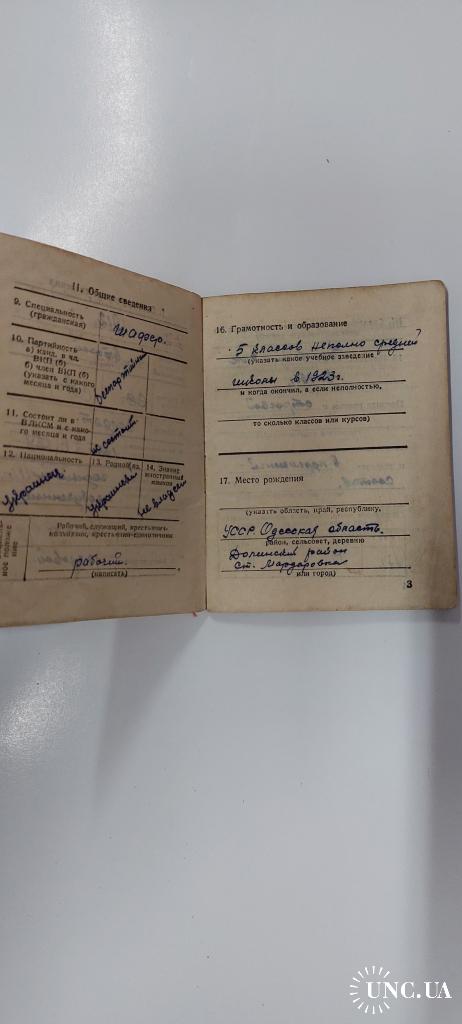 11. Общие сведения
9. Специальность
(гражданская)
шофер.
10. Партийность
а) канд. в чл.
ВКП (б)
б) член ВКП (б)
(указать с какого
месяца и года)
беспартийный
11. Состоит ли в
ВЛКСМ и с како-
го месяца и года
не состоит.
12. Национальность
украинец
13. Родной яз.
украинский
14. Знание
иностранных
языков
не владеет
ное положе-
ние
Рабочий, служащий, крестьянин-
колхозник, крестьянин-единоличник
рабочий.
(написать)
16. Грамотность и образование
5 классов неполно средней
(указать какое учебное заведение
школы в 1923 г.
и когда окончил, а если неполностью,
то сколько классов или курсов)
17. Место рождения
(указать область, край, республику,
УССР Одесская область.
район, сельсовет, деревню
Долинский район
ст. Мардаровка
или город)
3
UNC.UA